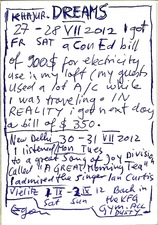 KHAJUR. DREAMS
27-28 VII 2012 I got
FR SAT a Con Ed bill
of 9000$ for electricity
use in my loft (my guests
used a lot A/C while
I was traveling. IN
REALITY I got next day
a bill of $350.
New Delhi 30-31 VII 2012
I listened on Tues
to a great song of Joy Division
called "A GREAT Morning Tear"
I admired the singer Ian Curtis
1 IX - 2 IX 12 Back in
Sat Sun the KFG
GYM. ALL
DUSTY